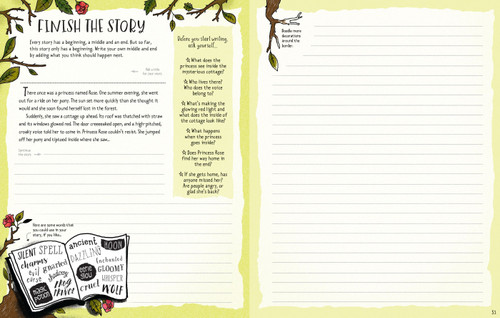 FINISH THE STORY
Every story has a beginning, a middle and an end. But so far,
this story only has a beginning. Write your own middle and end
by adding what you think should happen next.
There once was a princess named Rose. One summer evening, she went
out for a ride on her pony. The sun set more quickly than she thought it
would and she soon found herself lost in the forest.
Suddenly, she saw a cottage up ahead. Its roof was thatched with straw
and its windows glowed red. The door creaked open, and a high-pitched,
croaky voice told her to come in. Princess Rose couldn't resist. She jumped
off her pony and tiptoed inside where she saw...
Before you start writing,
ask yourself...
What does the
princess see inside the
mysterious cottage?
Who lives there?
Who does the voice
belong to?
What's making the
glowing red light and
what does the inside of
the cottage look like?
What happens
when the princess
goes inside?
Does Princess Rose
find her way home in
the end?
If she gets home, has
anyone missed her?
Are people angry, or
glad she's back?
Here are some words that
you could use in your
story, if you like...
SILENT SPELL
charms
evil
curse
gnarled
MAGIC
POTION
ancient
MOON
DAZZLING
eerie
glow
Enchanted
GLOOMY
WHISPER
cruel
WOLF
Doodle more
decorations
around the
border.
51